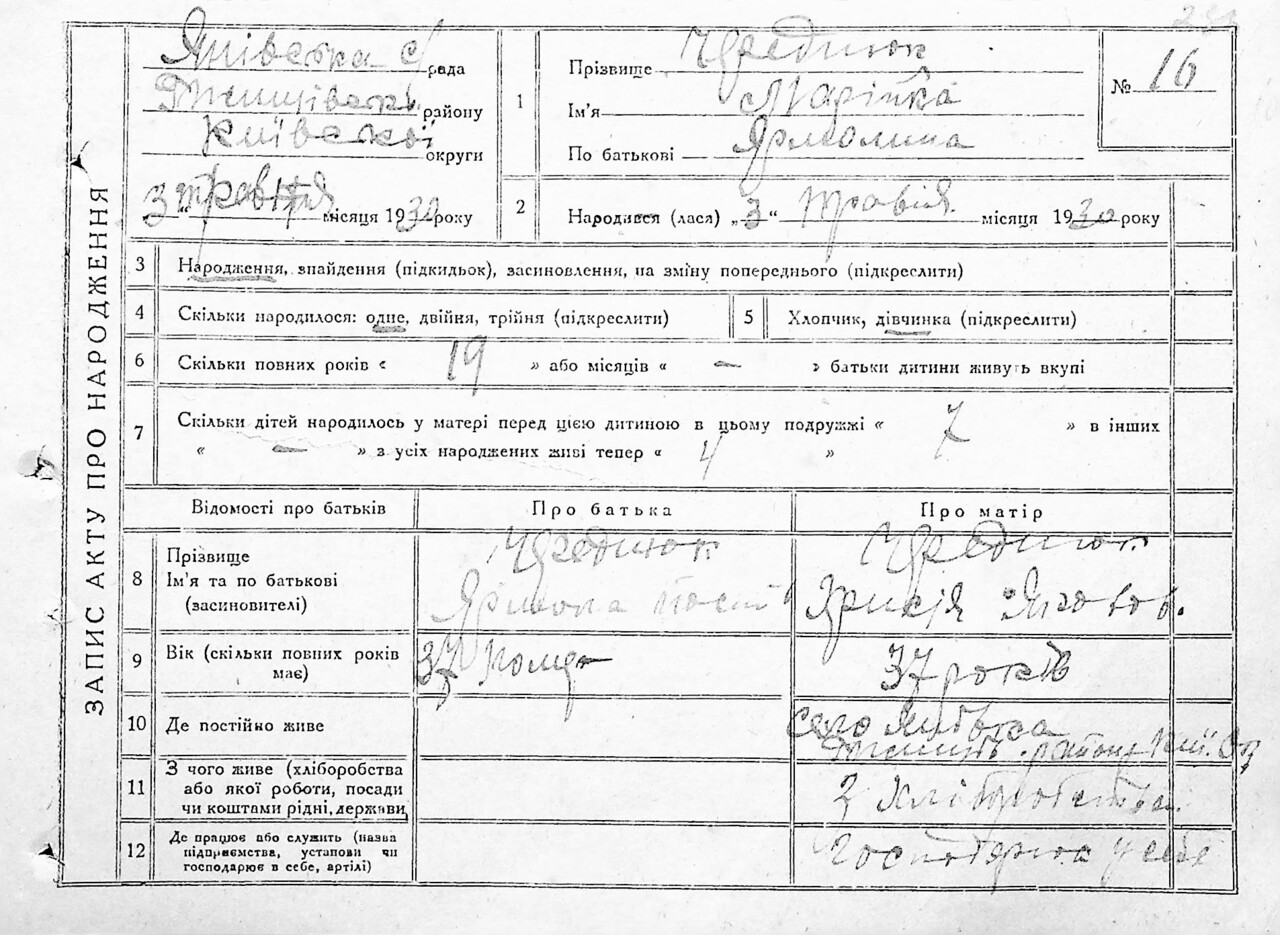 ЗАПИС АКТУ ПРО НАРОДЖЕННЯ
Янівська с/рада
району
Київської округи
3 травня місяця 1930 року
1
Прізвище Чередиюк
Ім'я Марійка
По батькові Ярмолина
№ 16
2
Народився (лася) „3“ травня місяця 1930 року
3 Народження, знайдення (підкидьок), засиновлення, на зміну попереднього (підкреслити)
4 Скільки народилося: одне, двійня, трійня (підкреслити)
5 Хлопчик, дівчинка (підкреслити)
6 Скільки повних років « 19 » або місяців « — » батьки дитини живуть вкупі
7 Скільки дітей народилось у матері перед цією дитиною в цьому подружжі « 7 » в інших
« — » з усіх народжених живі тепер « 4 »
Відомості про батьків
Про батька
Про матір
8
Прізвище
Ім'я та по батькові
(засиновителі)
Чередиюк
Ярмола
Чередиюк
9
Вік (скільки повних років
має)
37
37 років
10 Де постійно живе
село
района
11
З чого живе (хліборобства
або якої роботи, посади
чи коштами рідні, держави
З хліборобства.
12
Де працює або служить (назва
підприємства, установи чи
господарює в себе, артілі)
у себе